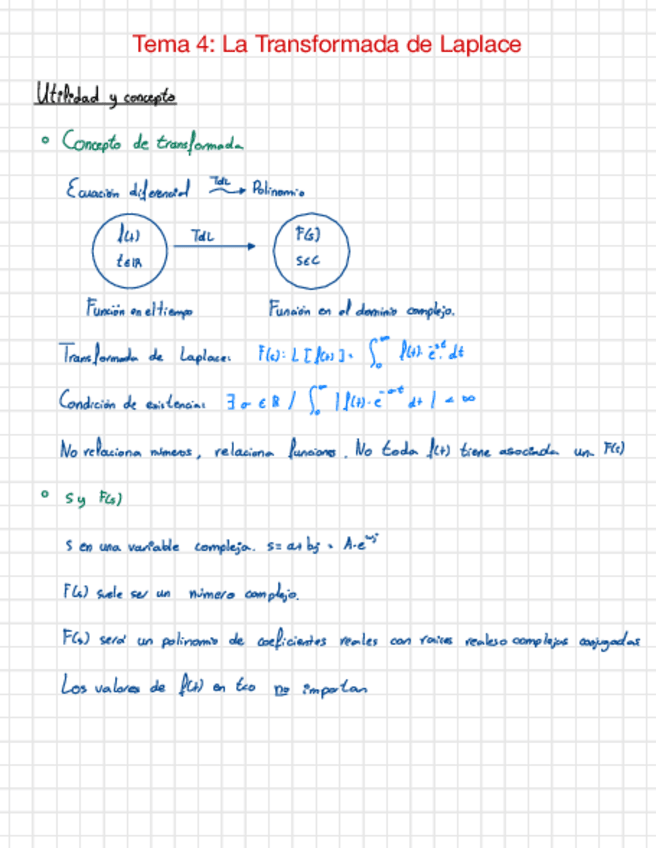 Tema 4: La Transformada de Laplace
Utilidad y concepto
Concepto de transformada
Ecuación diferencial TdL → Polinomio
f(t) TdL F(s)
t∈ℝ s∈C
Función en el tiempo Función en el dominio complejo.
Transformada de Laplace: F(s): L[f(t)] = ∫₀^∞ f(t)·e^-st dt
Condición de existencia: ∃ σ ∈ ℝ / ∫₀^∞ |f(t)·e^-σt dt| < ∞
No relaciona números, relaciona funciones. No toda f(t) tiene asociada un F(s)
s y F(s)
s en una variable compleja. s= a+bj = A·e^ωj
F(s) suele ser un número complejo.
F(s) será un polinomio de coeficientes reales con raíces reales o complejas conjugadas
Los valores de f(t) en t<0 no importan